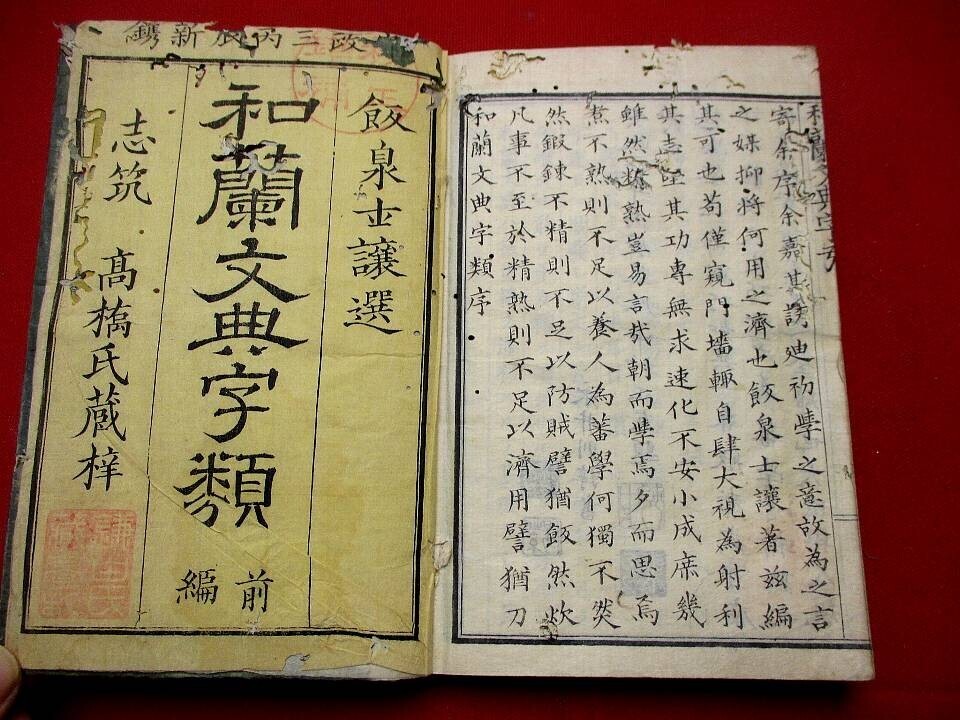 政三丙辰新鐫
飯泉士讓選
和蘭文典字類
前編
志筑 高橋氏蔵梓
和蘭文典字類序
凡事不至於精熟則不足以濟用譬猶刀
然鍛鍊不精則不足以防賊譬猶飯然炊
煮不熟則不足以養人為蕃學何獨不然
雖然精熟豈易言哉朝而學焉夕而思焉
其志堅其功專無求速化不安小成庶幾
其可也苟僅窺門墻輙自肆大視為射利
之媒抑将何用之濟也飯泉士讓著茲編
寄余序余嘉其誘迪初學之意故為之言